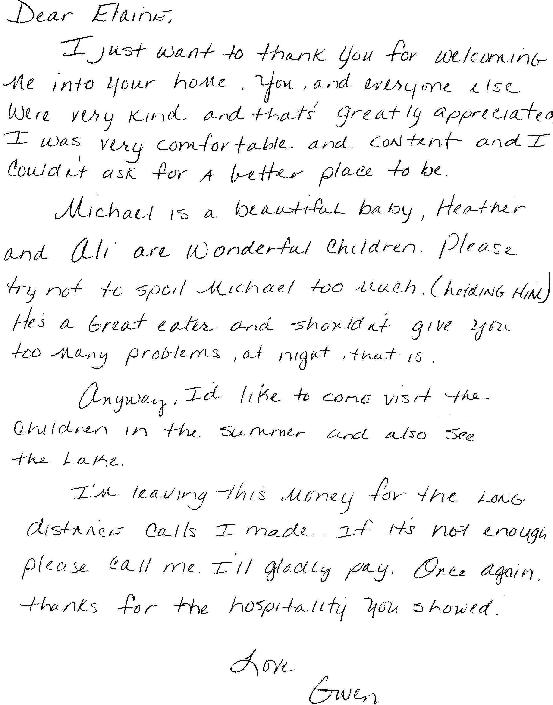 Dear Elaine,
I just want to thank you for welcoming
me into your home. You, and everyone else
were very kind and that's greatly appreciated
I was very comfortable and content and I
couldn't ask for a better place to be.
Michael is a beautiful baby, Heather
and Ali are wonderful children. Please
try not to spoil Michael too much. (holding him)
He's a great eater and shouldn't give you
too many problems, at night, that is.
Anyway, I'd like to come visit the
children in the summer and also see
the Lake.
I'm leaving this money for the long
distance calls I made. If it's not enough
please call me. I'll gladly pay. Once again,
thanks for the hospitality you showed.
Love
Gwen